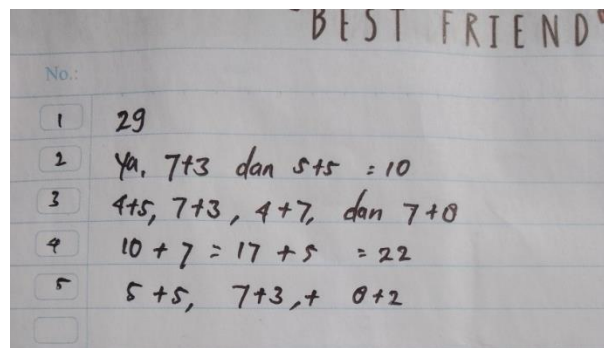 "BEST FRIEND"
No.:
1 29
2 Ya, 7+3 dan 5+5 = 10
3 4+5, 7+3, 4+7, dan 7+0
4 10 + 7 = 17 + 5 = 22
5 5+5, 7+3, + 0+2